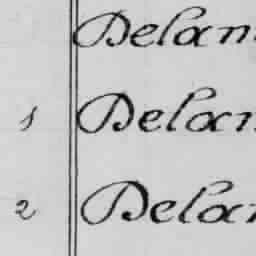 Delan
1 Delan
2 Delan